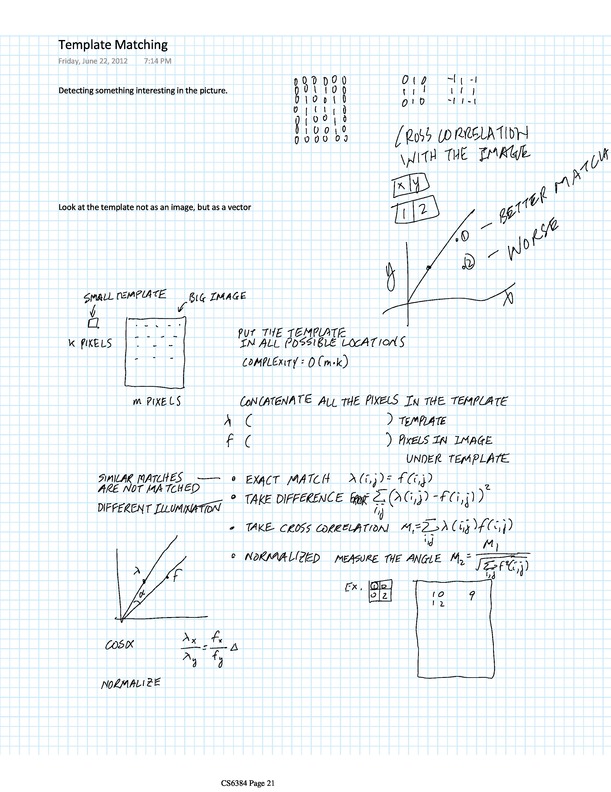 Template Matching
Friday, June 22, 2012 7:14 PM
Detecting something interesting in the picture.
0 1 0
1 1 1
0 1 0
-1 1 -1
1 1 1
-1 1 -1
CROSS CORRELATION
WITH THE IMAGE
x y
1 2
① - BETTER MATCH
② - WORSE
y
x
Look at the template not as an image, but as a vector
SMALL TEMPLATE
BIG IMAGE
K PIXELS
m PIXELS
PUT THE TEMPLATE
IN ALL POSSIBLE LOCATIONS
COMPLEXITY = O(m·k)
CONCATENATE ALL THE PIXELS IN THE TEMPLATE
λ ( ) TEMPLATE
f ( ) PIXELS IN IMAGE
UNDER TEMPLATE
SIMILAR MATCHES
ARE NOT MATCHED
• EXACT MATCH λ(i,j) = f(i,j)
DIFFERENT ILLUMINATION
• TAKE DIFFERENCE Σ i,j (λ(i,j) - f(i,j))²
• TAKE CROSS CORRELATION M₁ = Σ i,j λ(i,j) f(i,j)
• NORMALIZED MEASURE THE ANGLE M₂ = M₁ / √(Σ i,j f²(i,j))
λ
f
α
COSα
λx/λy = fx/fy Δ
NORMALIZE
EX.
1 0
0 2
10 9
12
CS6384 Page 21